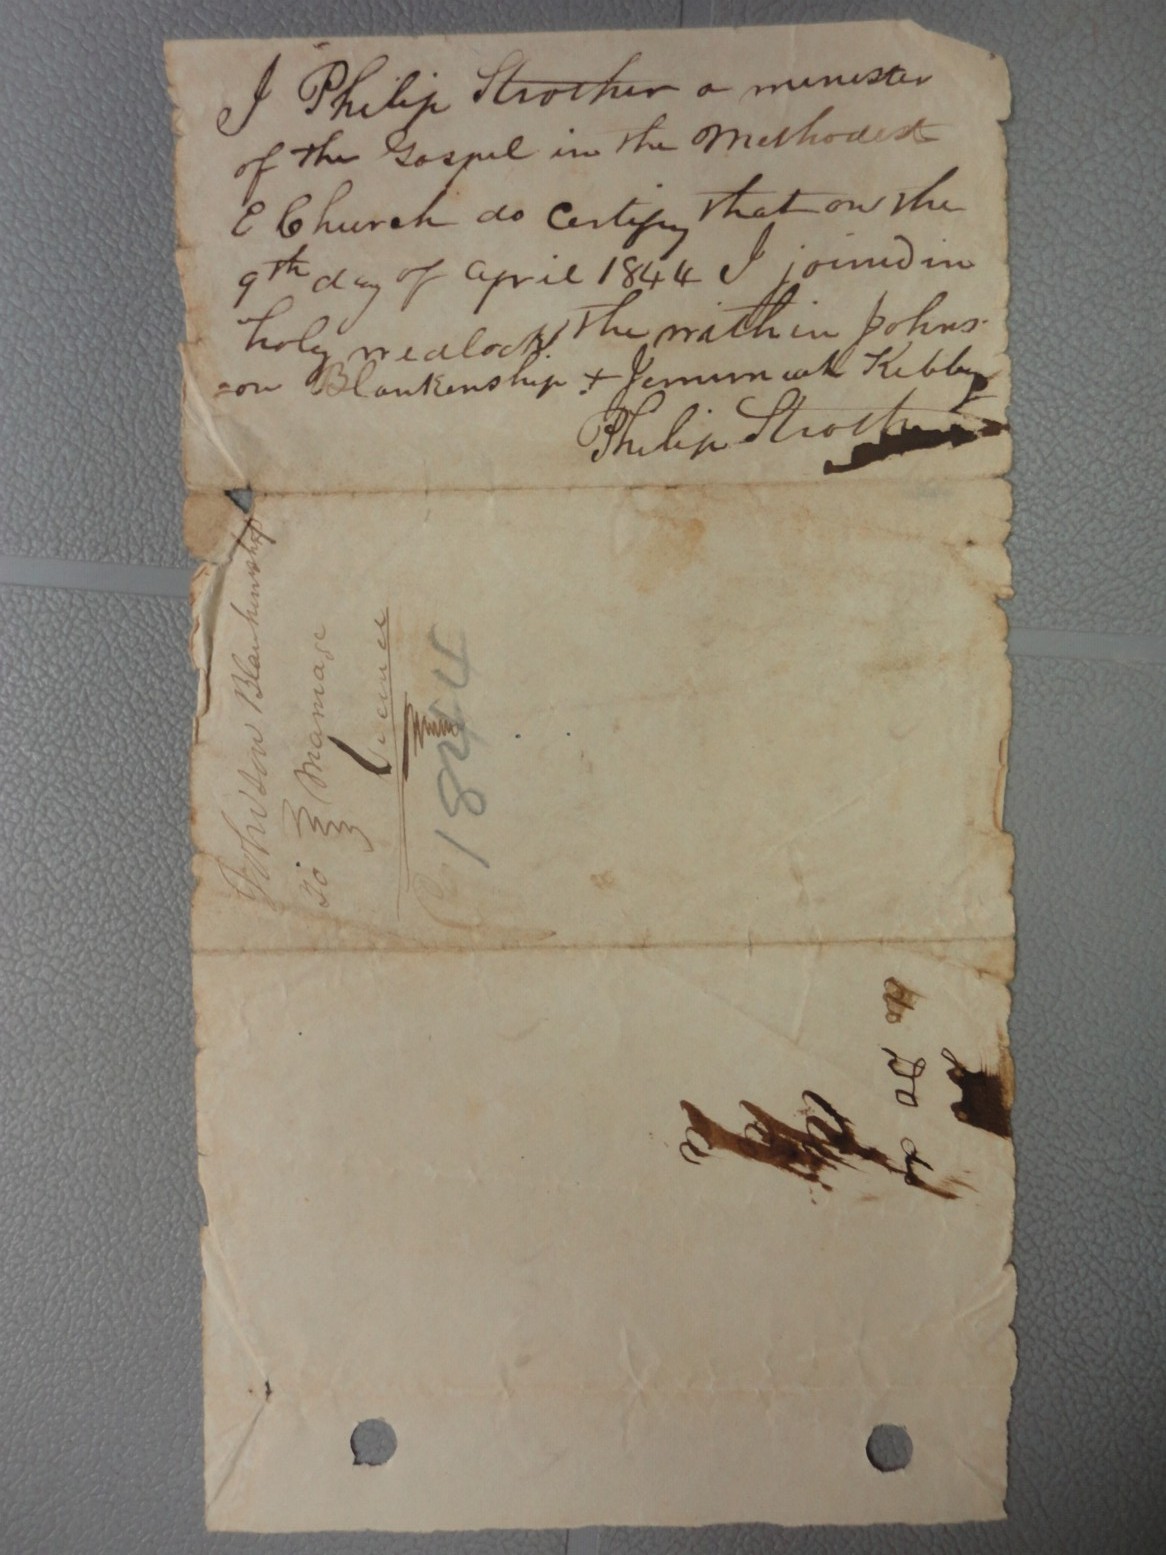 I Philip Strother a minister
of the Gospel in the Methodest
E Church do certify that on the
9th day of April 1844 I joined in
holy wedlock the within Johns-
-on Blankenship + Jemimah Kibby
Philip Strother
Johnston Blankinship
To Marriage
Licence
1844